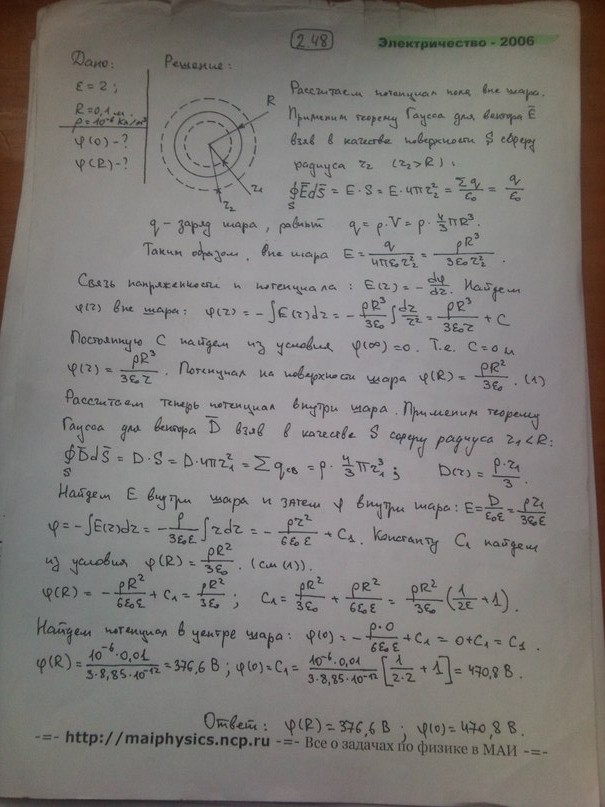 2.48
Электричество - 2006
Дано:
Решение:
ε = 2 ;
R = 0,1 м.
ρ = 10⁻⁶ Кл/м³
φ(0) - ?
φ(R) - ?
R
r₁
r₂
Рассчитаем потенциал поля вне шара.
Применим теорему Гаусса для вектора E̅
взяв в качестве поверхности S сферу
радиуса r₂ (r₂>R) :
∮E̅dS̅ = E·S = E·4πr₂² = Σq/ε₀ = q/ε₀
S
q - заряд шара, равный q = ρ·V = ρ·4/3 πR³.
Таким образом, вне шара E = q/4πε₀r₂² = ρR³/3ε₀r₂² .
Связь напряженности и потенциала : E(r) = - dφ/dr. Найдем
φ(r) вне шара: φ(r) = -∫E(r)dr = - ρR³/3ε₀ ∫dr/r² = ρR³/3ε₀r + C
Постоянную C найдем из условия φ(∞) = 0. Т.е. C = 0 и
φ(r) = ρR³/3ε₀r . Потенциал на поверхности шара φ(R) = ρR²/3ε₀ . (1)
Рассчитаем теперь потенциал внутри шара. Применим теорему
Гаусса для вектора D̅ взяв в качестве S сферу радиуса r₁<R:
∮D̅dS̅ = D·S = D·4πr₁² = Σqсв = ρ·4/3 πr₁³ ; D(r) = ρ·r₁/3 .
S
Найдем E внутри шара и затем φ внутри шара: E = D/ε₀ε = ρr₁/3ε₀ε
φ = -∫E(r)dr = - ρ/3ε₀ε ∫rdr = - ρr²/6ε₀ε + C₁ . Константу C₁ найдем
из условия φ(R) = ρR²/3ε₀ . (см(1)).
φ(R) = - ρR²/6ε₀ε + C₁ = ρR²/3ε₀ ; C₁ = ρR²/3ε₀ + ρR²/6ε₀ε = ρR²/3ε₀ (1/2ε + 1) .
Найдем потенциал в центре шара: φ(0) = - ρ·0/6ε₀ε + C₁ = 0 + C₁ = C₁ .
φ(R) = 10⁻⁶·0,01/3·8,85·10⁻¹² = 376,6 В ; φ(0) = C₁ = 10⁻⁶·0,01/3·8,85·10⁻¹² [1/2·2 + 1] = 470,8 В .
Ответ: φ(R) = 376,6 В ; φ(0) = 470,8 В .
-=- http://maiphysics.ncp.ru -=- Все о задачах по физике в МАИ -=-